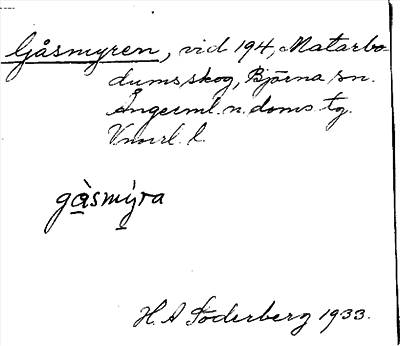 Gåsmyren, vid 194, Matarbo-
dumsskog, Björna sn.
Ångerml. n. doms. tg.
Vnorrl. l.
gàsmýra
H. A Söderberg 1933.